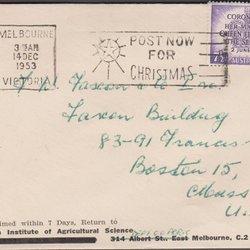 MELBOURNE
3 15AM
14 DEC
1953
VICTORIA
POST NOW
FOR
CHRISTMAS
CORON
HER MA
QUEEN EL
2 JUN
7½
AUST
F. W. Faxon & Co Inc.
Faxon Building
83-91 Francis
Boston 15,
Mass
U.
imed within 7 Days, Return to
n Institute of Agricultural Science
314 Albert St., East Melbourne, C.2